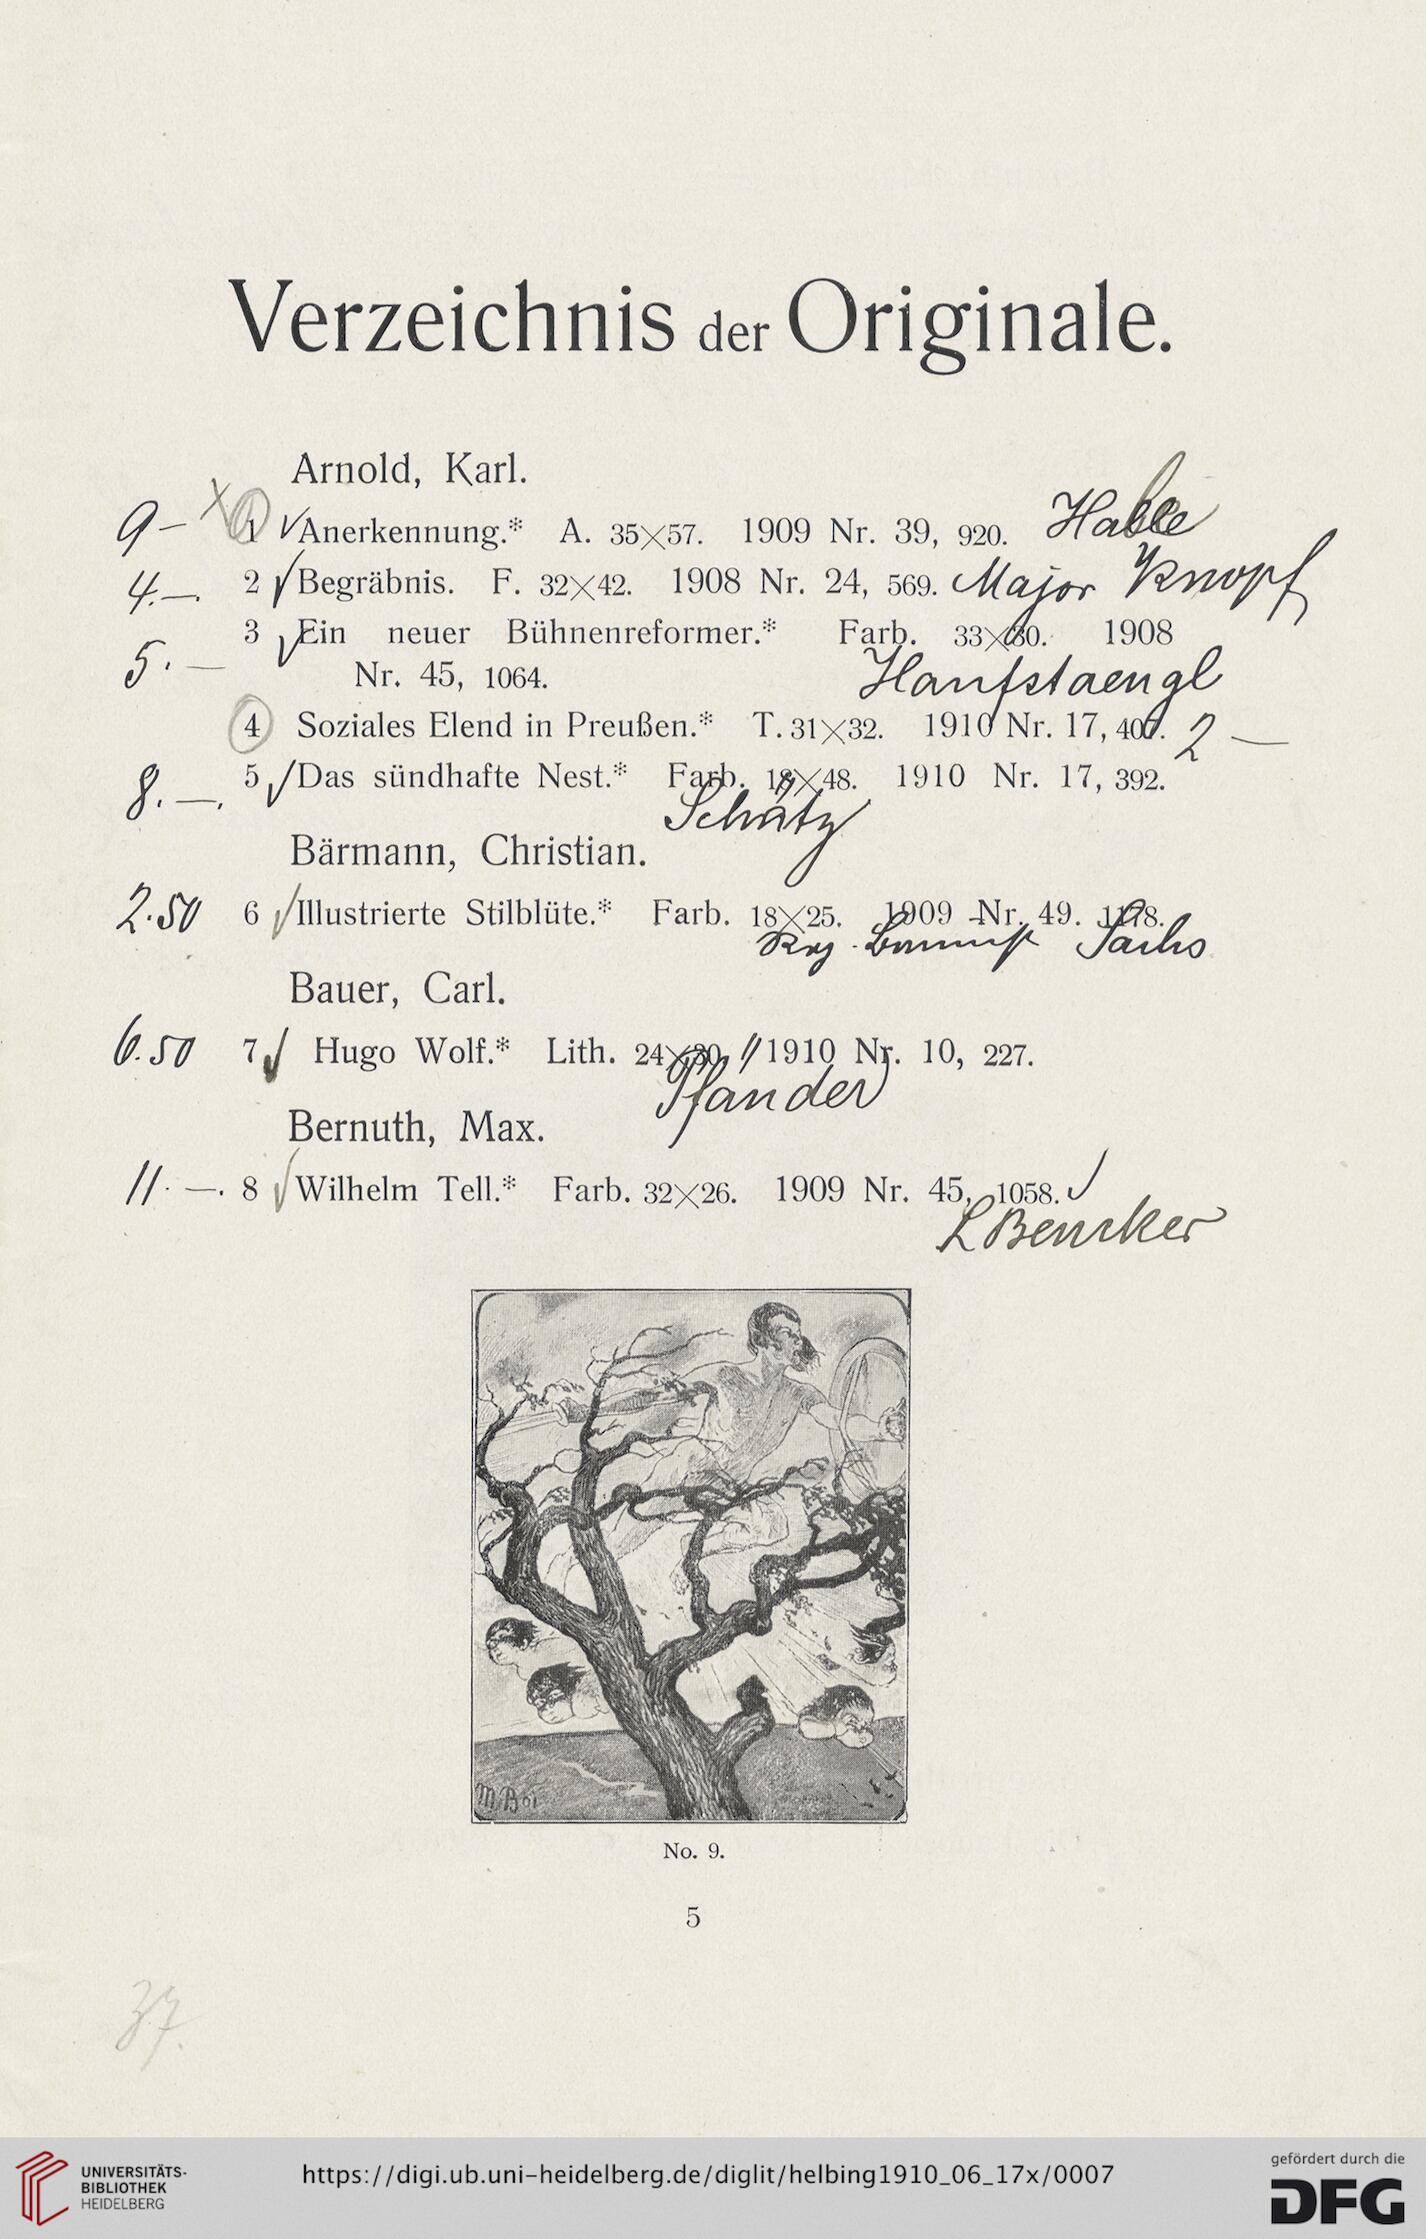 Verzeichnis der Originale.
Arnold, Karl.
9 – × 1 √ Anerkennung.* A. 35×57. 1909 Nr. 39, 920. Halle
4.—. 2 √ Begräbnis. F. 32×42. 1908 Nr. 24, 569. Major Knopf
3 √ Ein neuer Bühnenreformer.* Farb. 33×30. 1908
5. — Nr. 45, 1064. Hanfstaengl
4 Soziales Elend in Preußen.* T. 31×32. 1910 Nr. 17, 407. 2 —
8. —. 5 √ Das sündhafte Nest.* Farb. 18×48. 1910 Nr. 17, 392.
Schätz
Bärmann, Christian.
2.50 6 √ Illustrierte Stilblüte.* Farb. 18×25. 1909 Nr. 49. 1178.
Sachs
Bauer, Carl.
6.50 7 √ Hugo Wolf.* Lith. 24×30. 1910 Nr. 10, 227.
Pfänder
Bernuth, Max.
11. —. 8 √ Wilhelm Tell.* Farb. 32×26. 1909 Nr. 45, 1058. √
L Bencker
MB 01
No. 9.
5
37.
UNIVERSITÄTS-
BIBLIOTHEK
HEIDELBERG
https://digi.ub.uni-heidelberg.de/diglit/helbing1910_06_17x/0007
gefördert durch die
DFG